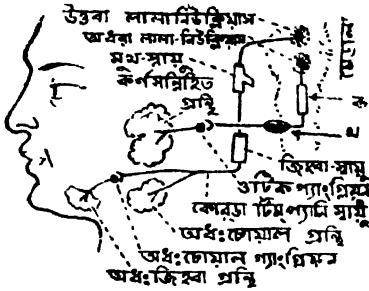 উত্তবা লালা নিউক্লিয়াস
অধরা লালা-নিউক্লিয়াস
মুখ-স্নায়ু
কর্ণসন্নিহিত
গ্রন্থি
ক
খ
জিহ্বা-স্নায়ু
ওটিক গ্যাংগ্লিয়ন
কোরডা টিম্প্যানি স্নায়ু
অধঃচোয়াল গ্রন্থি
অধঃচোয়াল গ্যাংগ্লিয়ন
অধঃজিহ্বা গ্রন্থি